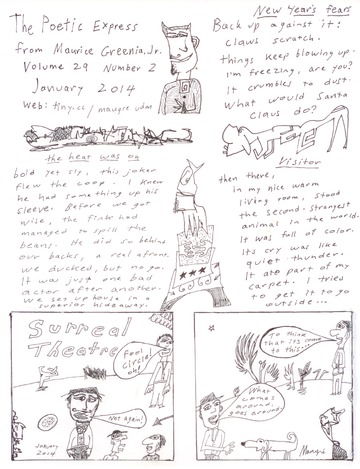 The Poetic Express
from Maurice Greenia, Jr.
Volume 29 Number 2
January 2014
Web: tiny.cc/maugre udm
New Year's fears
Back up against it:
claws scratch.
things keep blowing up.
I'm freezing, are you?
It crumbles to dust.
What would Santa
Claus do?
the heat was on
bold yet sly, this joker
flew the coop. I knew
he had something up his
sleeve. Before we got
wise, the fink had
managed to spill the
beans. He did so behind
our backs, a real afront.
we ducked, but no go.
It was just one bad
actor after another.
We set up house in a
superior hideaway.
Visitor
then there,
in my nice warm
living room, stood
the second strangest
animal in the world.
It was full of color.
Its cry was like
quiet thunder.
It ate part of my
carpet. I tried
to get it to go
outside...
Surreal
Theatre
Fool
Circle!
oh!
Not again!
January
2014
To think
that its come
to this...
What
comes
around
goes around.
Maugré